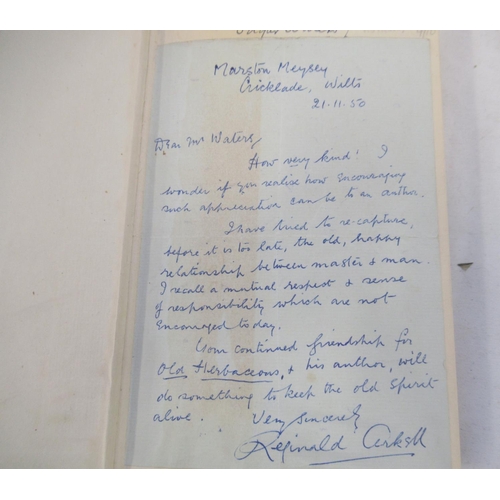 Marston Meysey
Cricklade, Wilts
21.11.50
Dear Mr Waters
How very kind! I
wonder if you realise how encouraging
such appreciation can be to an author.
I have tried to re-capture,
before it is too late, the old, happy
relationship between master & man.
I recall a mutual respect & sense
of responsibility which are not
encouraged today.
Your continued friendship for
Old Herbaceous, & his author, will
do something to keep the old spirit
alive. Very sincerely
Reginald Arkell